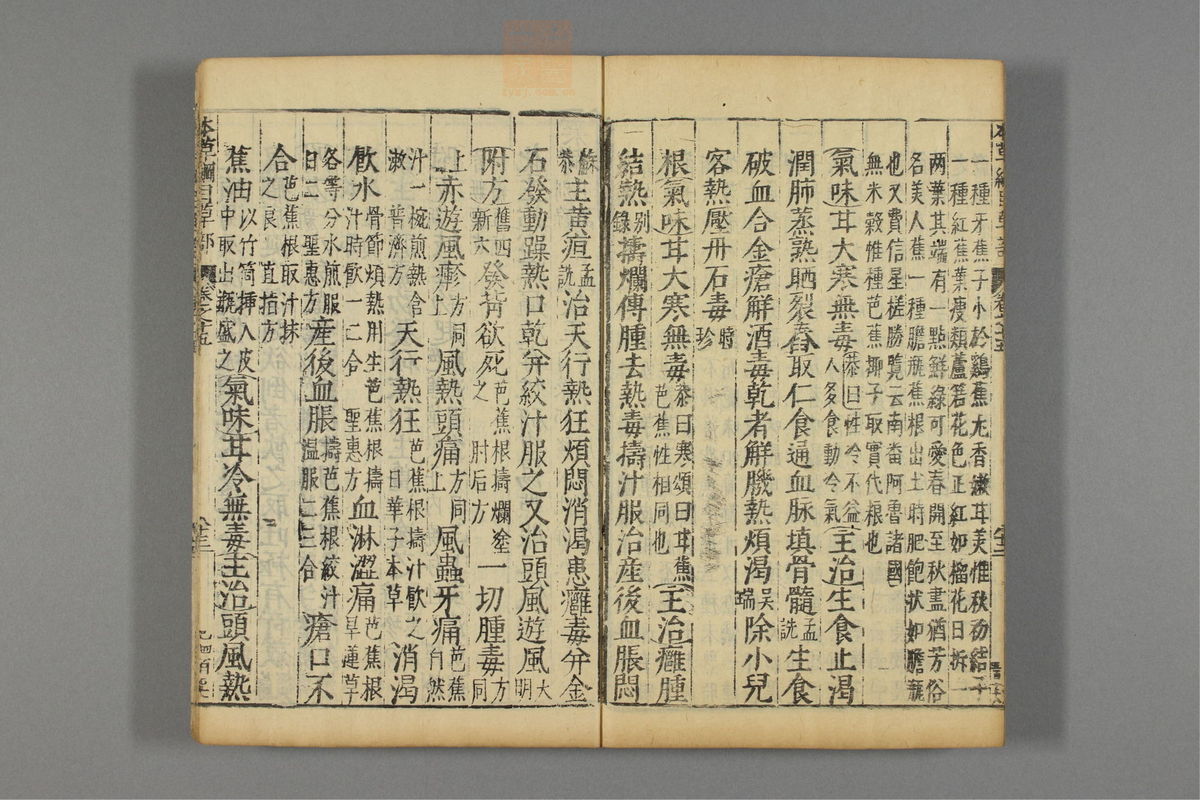 一種牙蕉子小於鷄蕉尤香嫩甘美惟秋初結子
一種紅蕉葉瘦類蘆箬花色正紅如榴花日拆一
兩葉其端有一點鮮綠可愛春開至秋盡猶芳俗
名美人蕉一種膽瓶蕉根出土時肥飽狀如膽瓶
也又費信星槎勝覽云南番阿魯諸國
無米穀惟種芭蕉椰子取實代根也
氣味甘大寒無毒恭曰性冷不益
人多食動冷氣主治生食止渴
潤肺蒸熟晒裂舂取仁食通血脉填骨髓孟詵生食
破血合金瘡解酒毒乾者解肌熱煩渴吳瑞除小兒
客熱壓丹石毒時珍
根氣味甘大寒無毒恭曰寒頌曰甘蕉
芭蕉性相同也主治癰腫
結熱别錄擣爛傅腫去熱毒擣汁服治産後血脹悶
蘇恭主黄疸孟詵治天行熱狂煩悶消渴患癰毒并金
石發動躁熱口乾并絞汁服之又治頭風遊風大明
附方舊四新六發背欲死芭蕉根擣爛塗
之 肘后方一切腫毒方同
上赤遊風㾦方同上風熱頭痛方同上風蟲牙痛芭蕉自然
汁一椀煎熱含
漱 普濟方天行熱狂芭蕉根擣汁飲之
日華子本草消渴
飲水骨節煩熱用生芭蕉根擣
汁時飲一二合 聖惠方血淋澀痛芭蕉根旱蓮草
各等分水煎服
日二 聖惠方産後血脹擣芭蕉根絞汁
温服二三合瘡口不
合芭蕉根取汁抹
之良 直指方
蕉油以竹筒揷入皮
中取出瓶盛之氣味甘冷無毒主治頭風熱